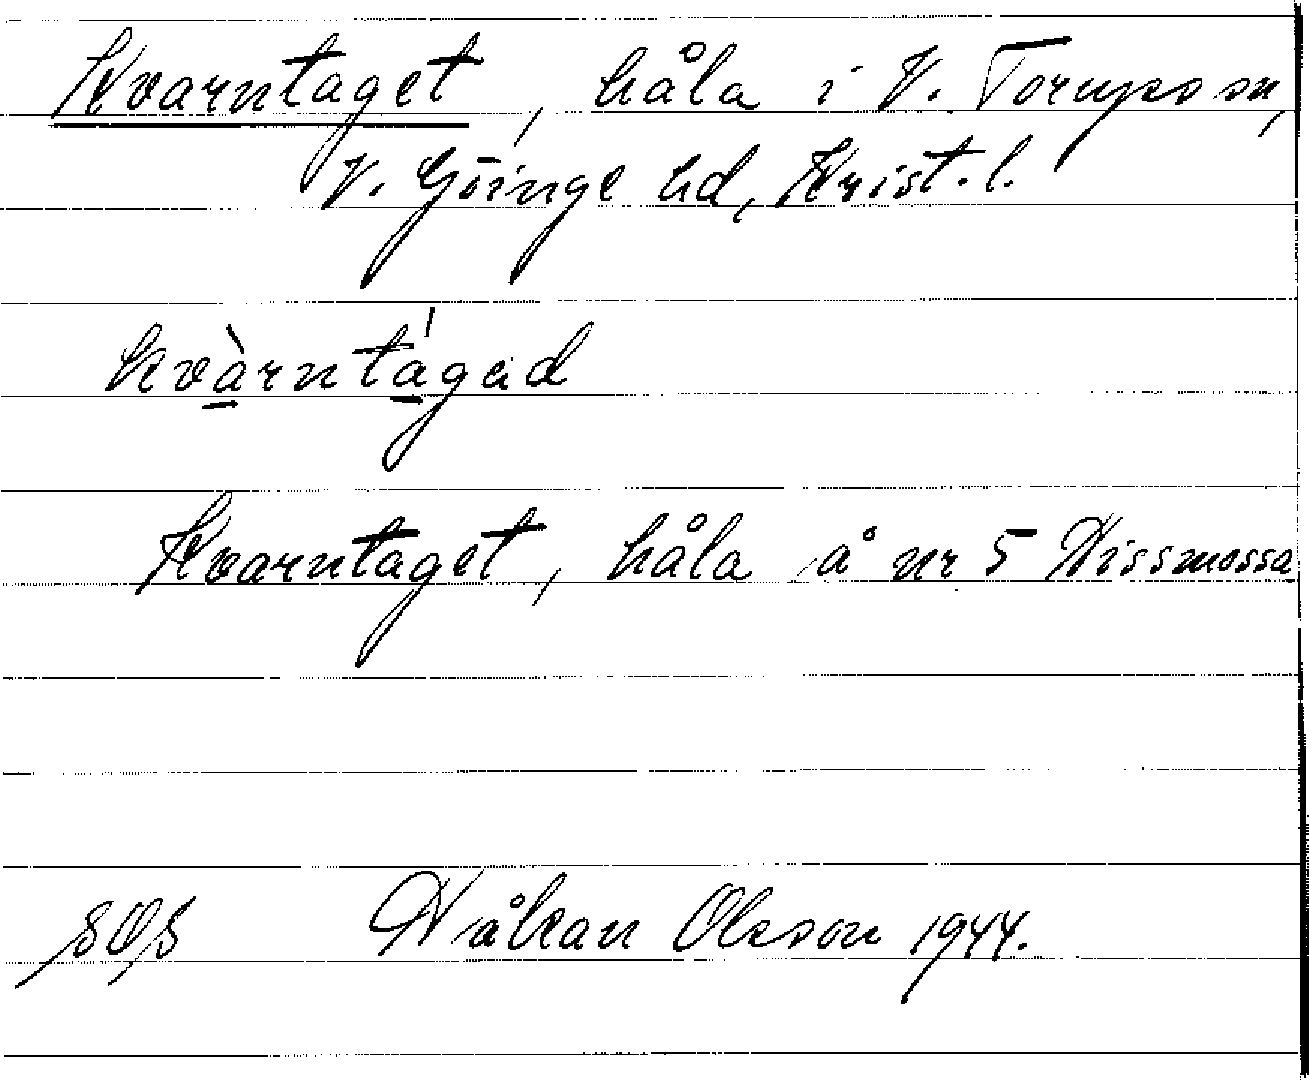 Kvarntaget, håla i V. Torups sn,
V. Göinge hd, Krist. l.
kvàrntágäd
Kvarntaget, håla å nr 5 Hissmossa
Håkan Olsson 1944.